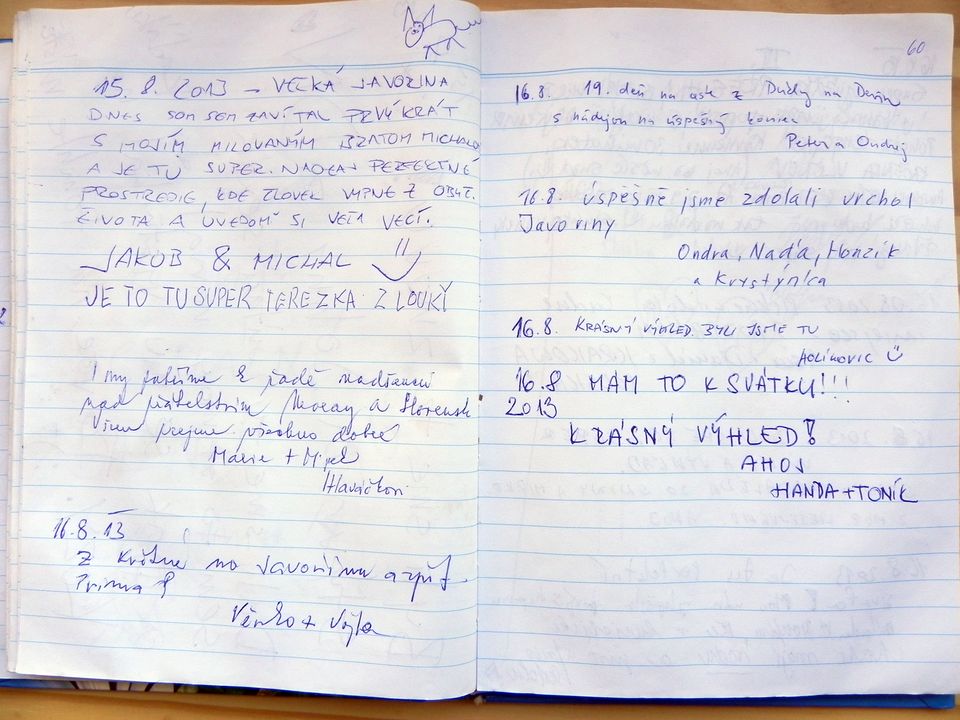 15. 8. 2013 – VEĽKÁ JAVORINA
DNES SOM SEM ZAVÍTAL PRVÝ KRÁT
S MOJÍM MILOVANÝM BRATOM MICHALO
A JE TU SUPER. NAOZAJ PERFEKTNÉ
PROSTREDIE, KDE ČLOVEK VYPNE Z OBYČ.
ŽIVOTA A UVEDOMÍ SI VEĽA VECÍ.
JAKUB & MICHAL
JE TO TU SUPER TEREZKA Z LOUKÝ
I my patříme k řadě nadšenců
nad přátelstvím Moravy a Slovenska
Vám přejeme všeobno dobré
Marie + Mirek
Hlaváčkovi
16.8.13
Z Květne na Javorinu a zpět.
Prima
Věrka + Vojta
60
16.8. 19. deň na ceste z Dukly na Devín
s nádejou na úspešný koniec
Peter a Ondrej
16.8. úspěšně jsme zdolali vrchol
Javoriny
Ondra, Naďa, Honzík
a Krystýnka
16.8. KRÁSNÝ VÝHLED. BYLI JSME TU
16.8 MÁM TO K SVÁTKU!!!
2013
KRÁSNÝ VÝHLED!
AHOJ
HANDA + TONÍK